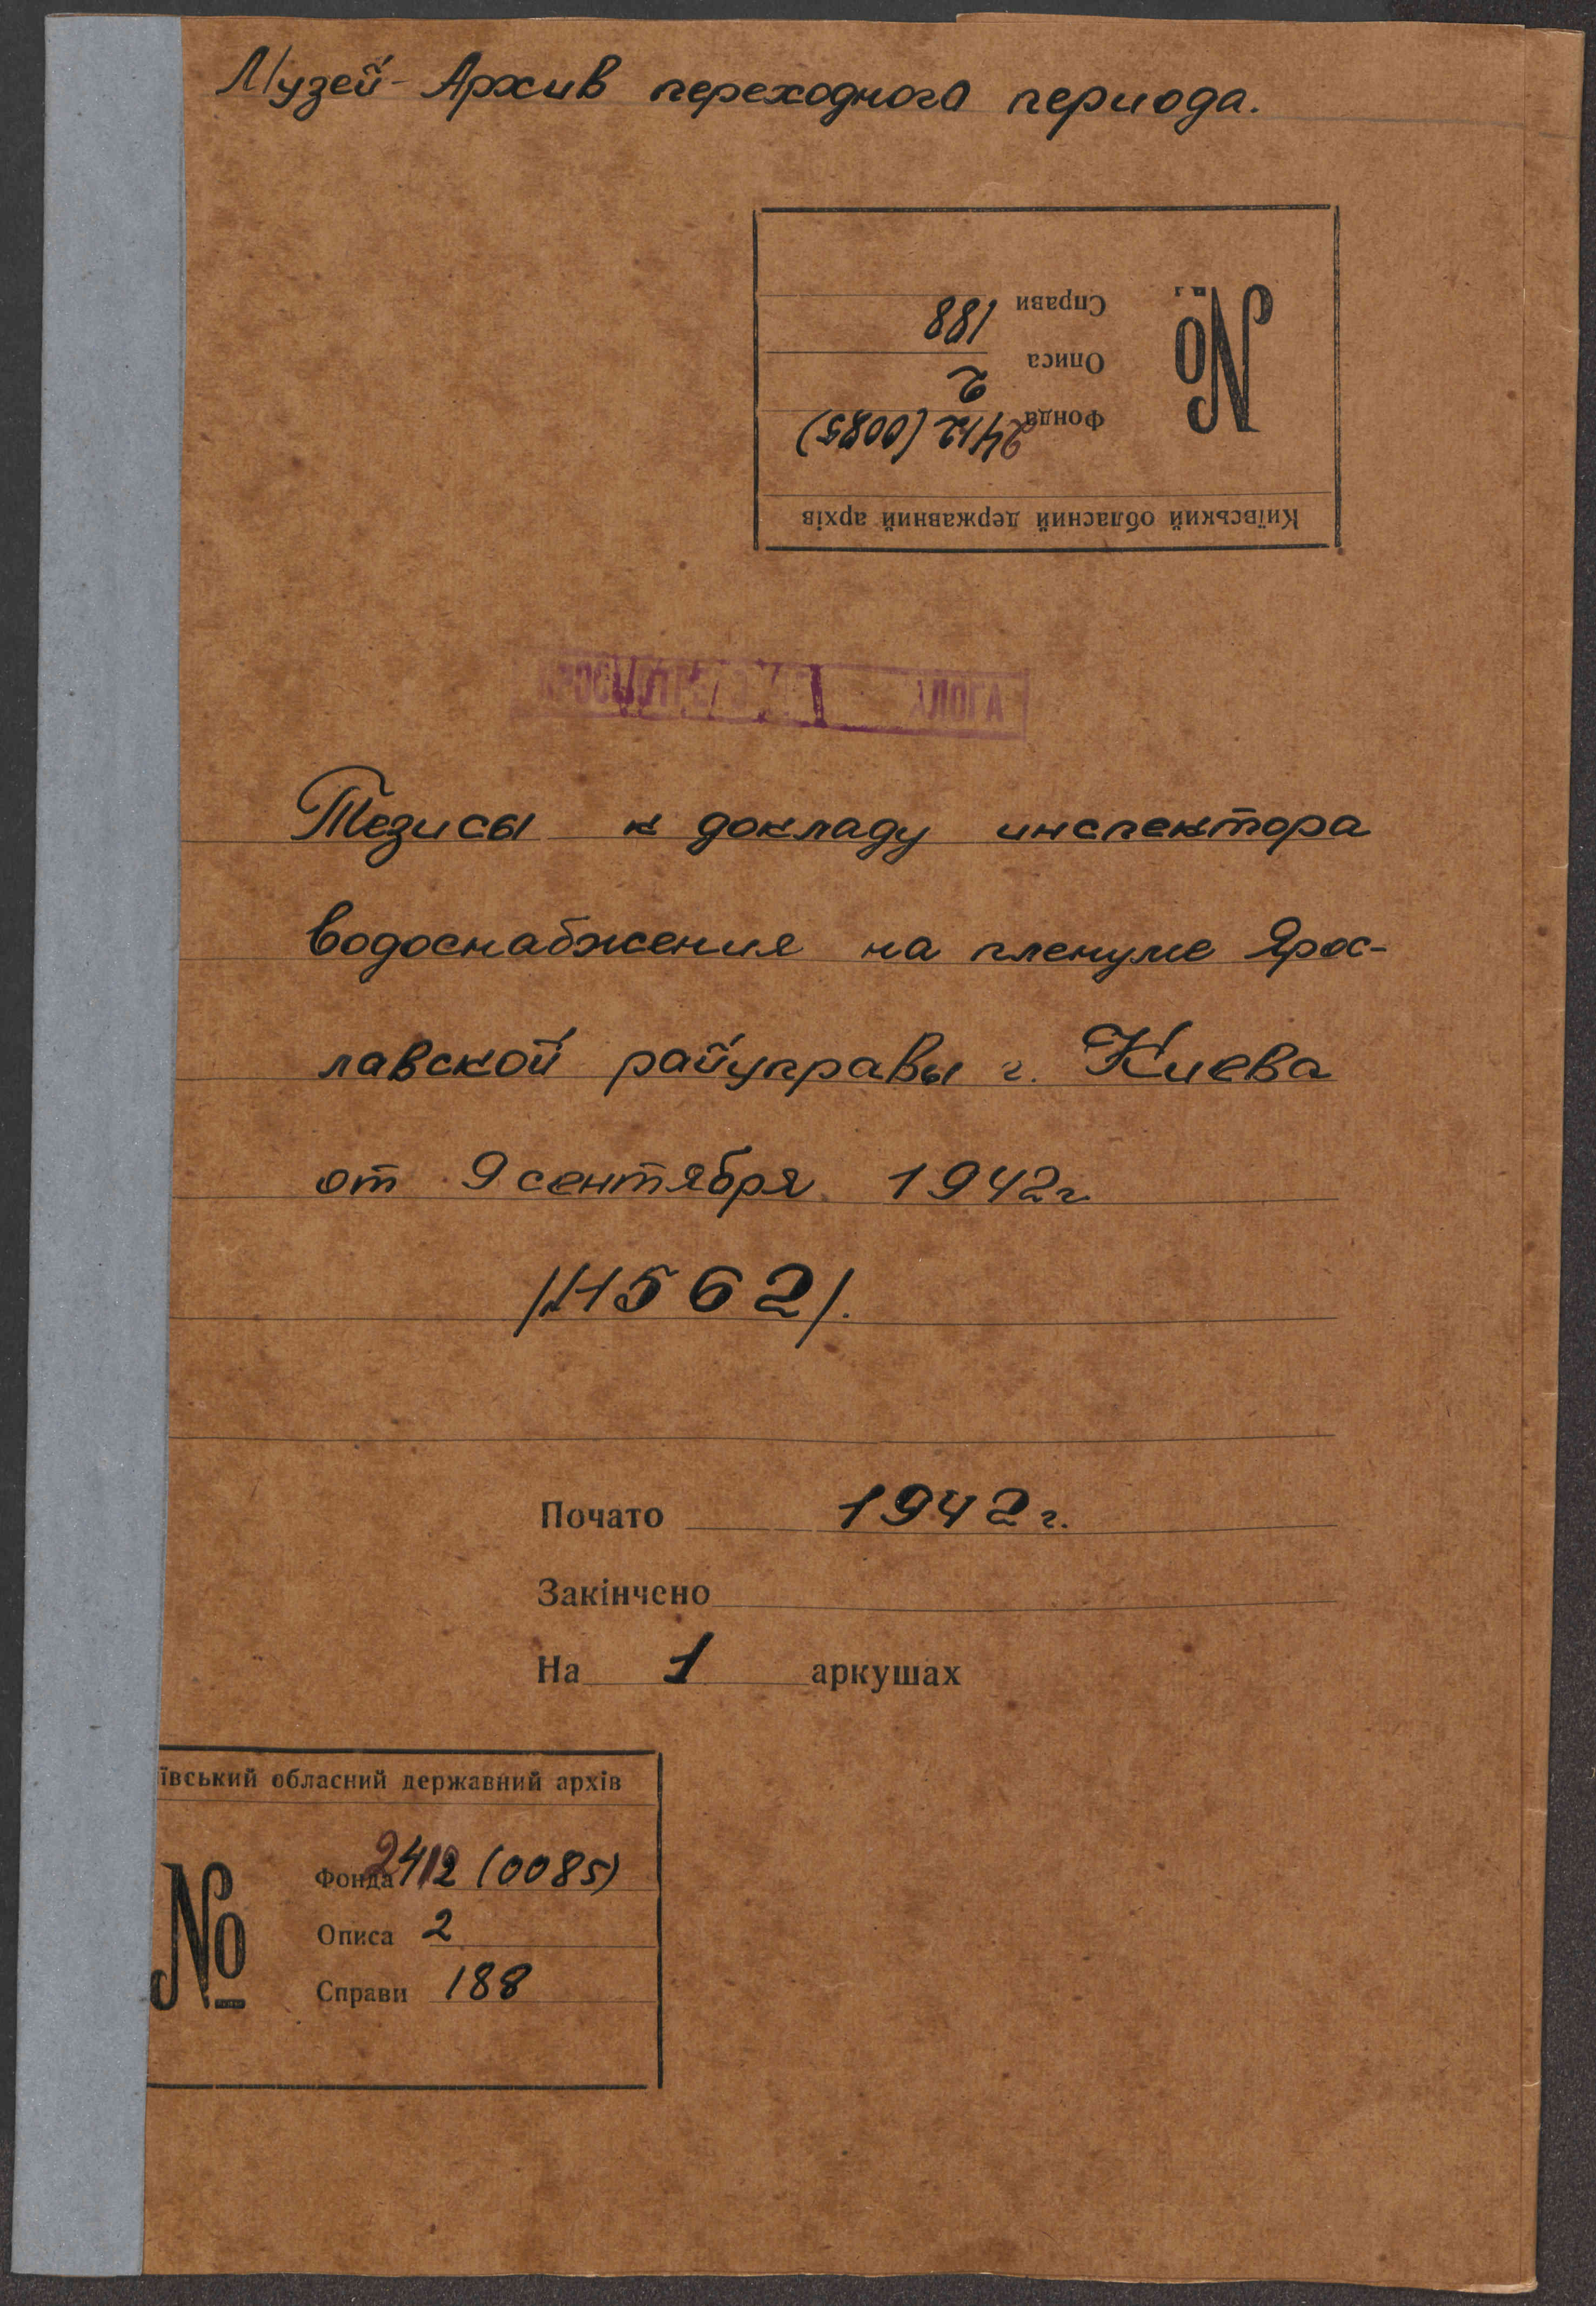 Музей-Архив переходного периода.
№
Справи 188
Описа 2
Фонда 2412 (0085)
Київський обласний державний архів
Тезисы к докладу инспектора
водоснабжения на пленуме Ярос-
лавской райуправы г. Киева
от 9 сентября 1942г
Почато 1942г.
Закінчено
На 1 аркушах
ївський обласний державний архів
№
Фонда 2412 (0085)
Описа 2
Справи 188